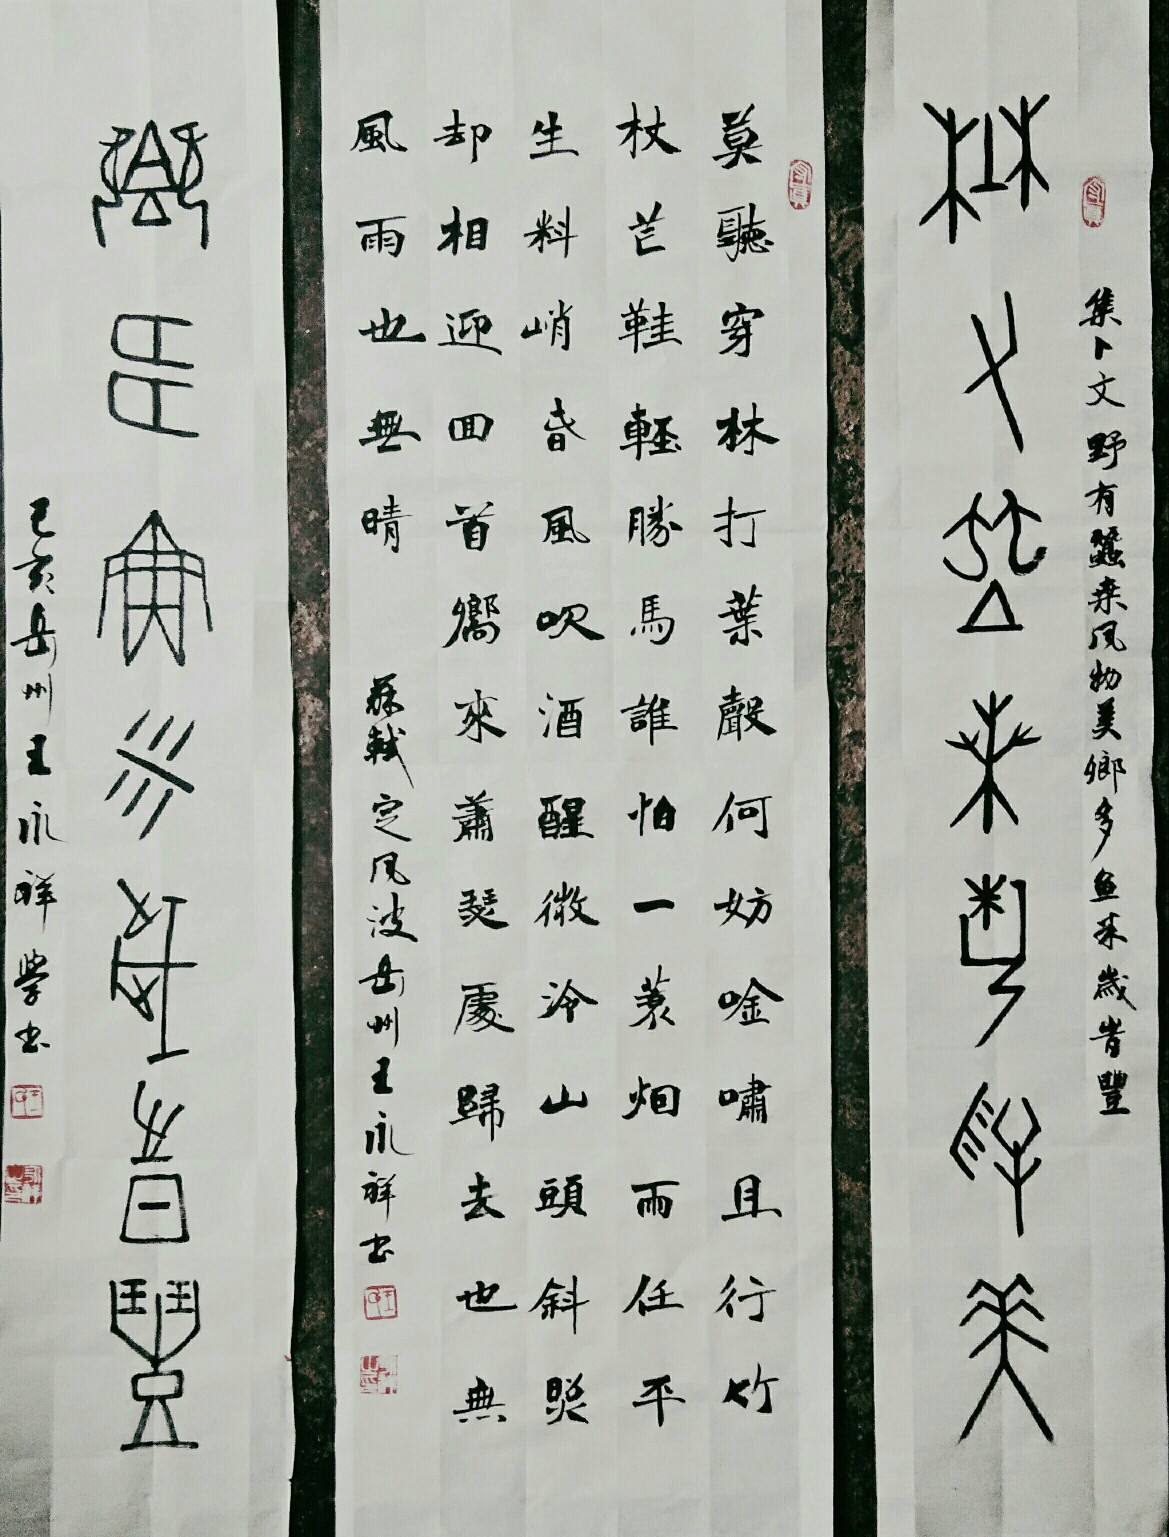 集卜文野有蠶桒风物美鄉多鱼米歲皆豐
野有蠶桑風物美
莫聽穿林打葉聲何妨唫嘯且行竹
杖芒鞋輕勝馬誰怕一蓑烟雨任平
生料峭春風吹酒醒微冷山頭斜照
却相迎回首嚮來蕭瑟處歸去也無
風雨也無晴
蘇軾定风波岳州王永祥书
鄉多魚米歲皆豐
己亥岳州王永祥學书